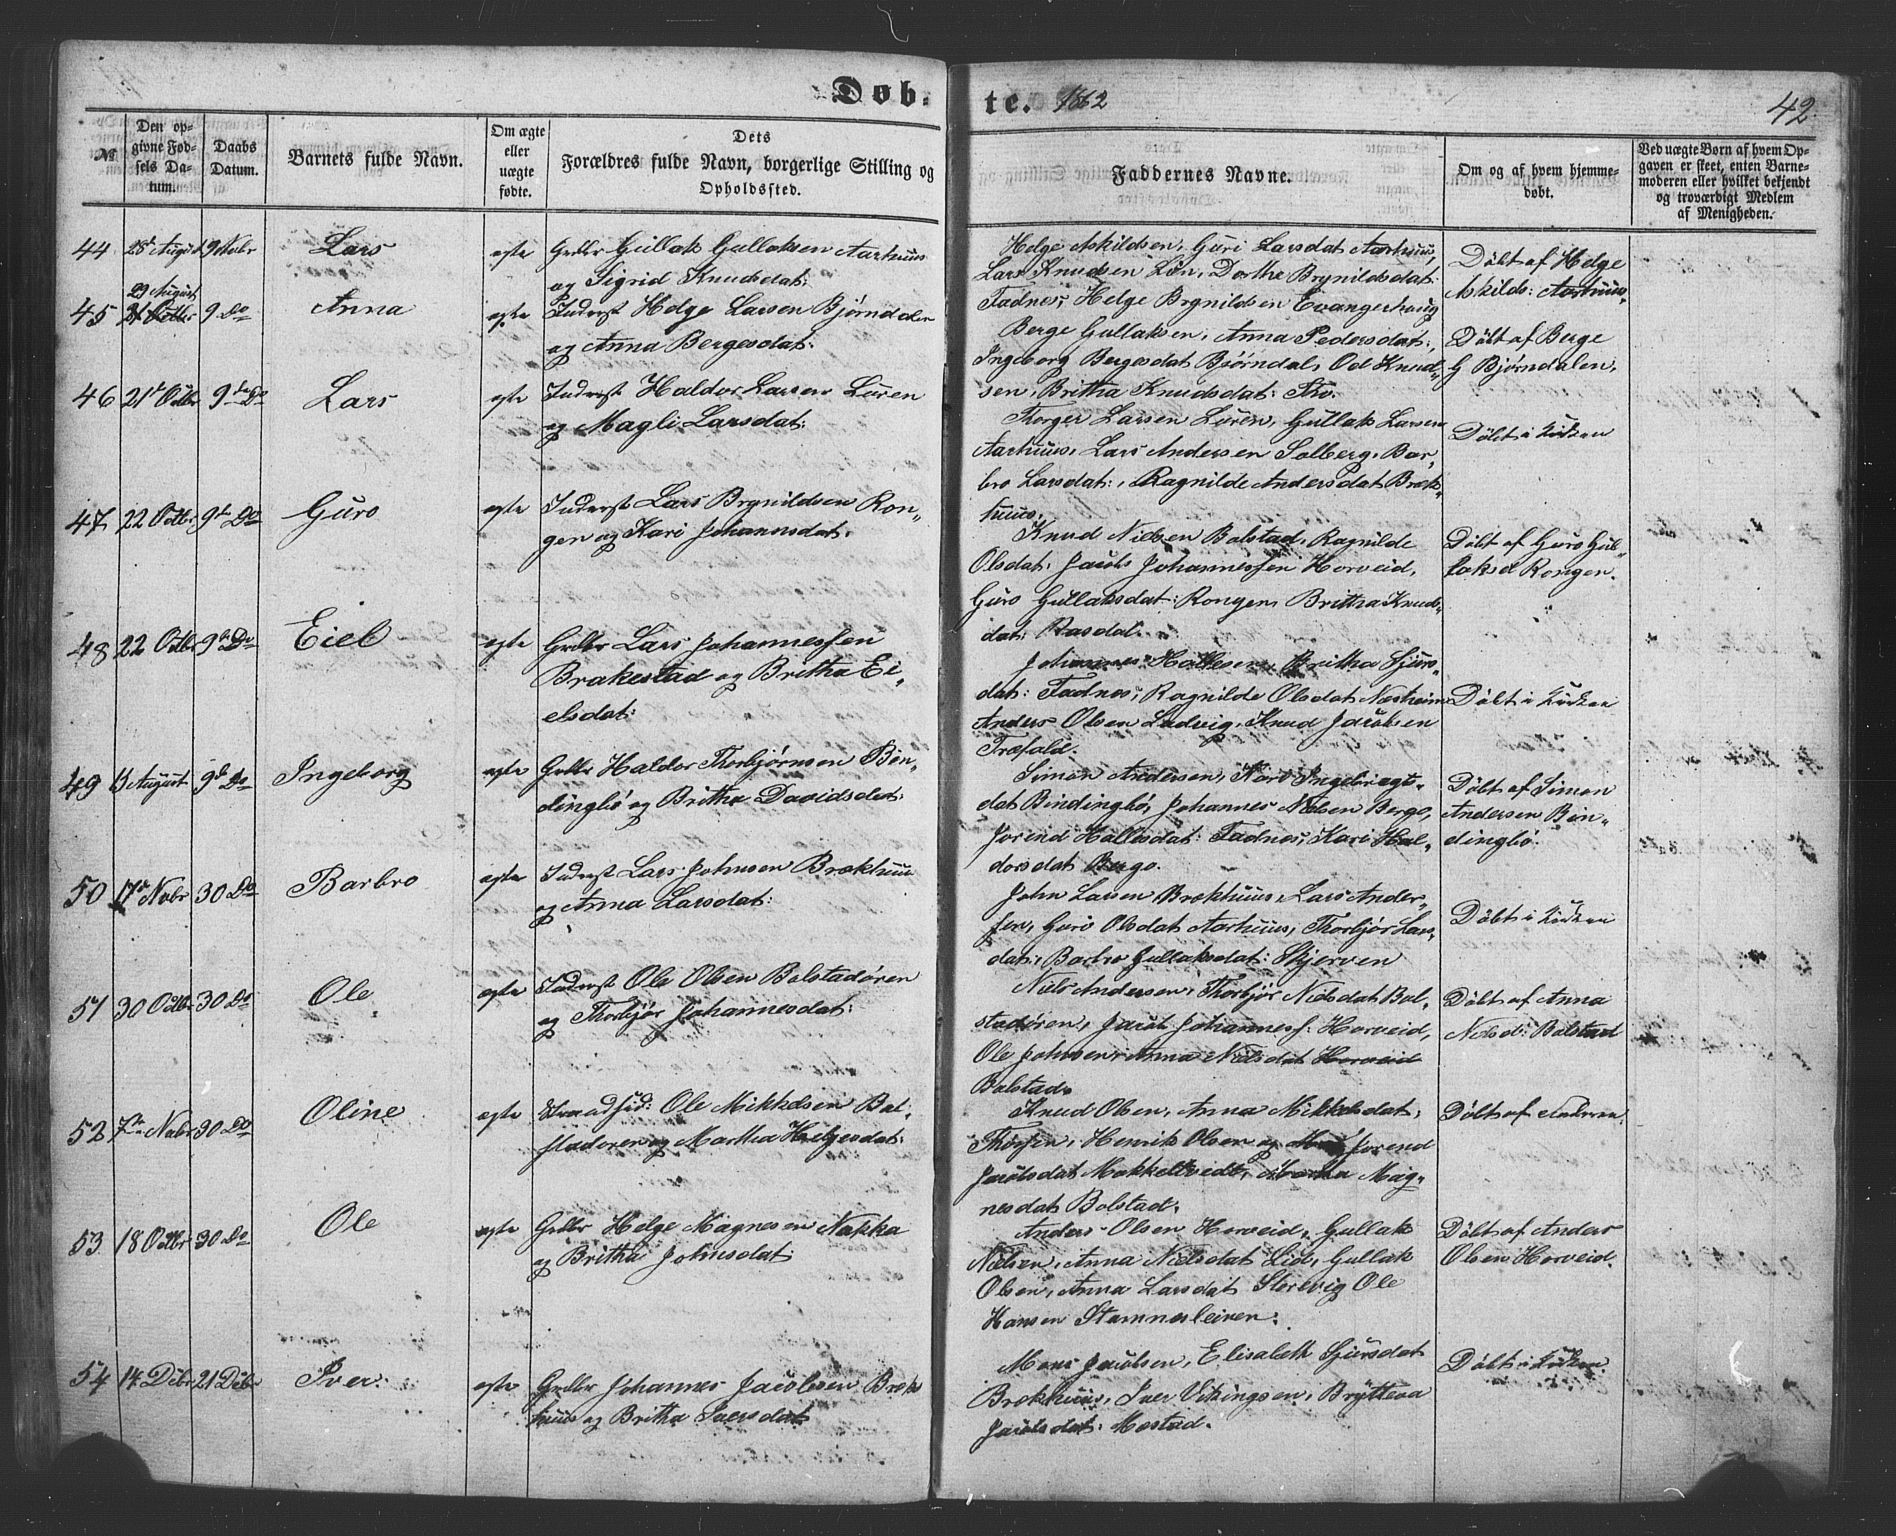 Døb.
te. 1862
42.
№
Den op-
givne Fød-
sels Da-
tum.
Daabs
Datum.
Barnets fulde Navn.
Om ægte
eller
uægte
fødte.
Dets
Forældres fulde Navn, borgerlige Stilling og
Opholdssted.
Faddernes Navne.
Om og af hvem hjemme-
døbt.
Ved uægte Børn af hvem Op-
gaven er skeet, enten Barne-
moderen eller hvilket bekjendt
og troværdigt Medlem
af Menigheden.
44 28de August 9 Nvbr Lars ægte Grdbr Gullak Gullaksen Aarhuus
og Sigrid Knudsdat:
Helge Askildsen, Guri Larsdat Aarhuus,
Lars Knudsen Løn, Dorthe Brynildsdat
Fadnes, Helge Brynildsen Evangerhvig
Døbt af Helge
Askilds: Aarhuus.
29 August
45 9 Do Anna ægte Inderst Helge Larsen Bjørndalen
og Anna Bergesdat:
Berge Gullaksen, Anna Pedersdat:,
Ingeborg Bergesdat Bjørndal, Od Knud-
sen, Britha Knudsdat: Fho.
Døbt af Berge
G Bjørndalen.
46 21de Octbr 9de Do Lars ægte Inderst Haldor Larsen Luren
og Magli Larsdat:
Thorger Larsen Luren, Gullak Larsen
Aarhuus, Lars Andersen Solberg, Bar-
bro Larsdat:, Ragnilde Andersdat Bræk-
huus.
Døbt i Kirken
47 22 Octbr 9de Do Guro ægte Inderst Lars Brynildsen Ron-
gen og Kari Johannsdat:
Knud Nielsen Bolstad, Ragnilde
Olsdat: Jacob Johannessen Horveid,
Guro Gullaksdat: Rongen, Britha Knuds-
dat: Rasdal.
Døbt af Guro Gul-
laksd Rongen.
48 22 Octbr 9de Do Eiel ægte Grdbr Lars Johannessen
Brakestad og Britha Ei-
elsdat:
Johannes Hallesen, Britha Sjurs-
dat: Fadnes, Ragnilde Olsdat Næsheim
Anders Olsen Ladvig, Knud Jacobsen
Træfald.
Døbt i Kirken
49 13 August 9de Do Ingeborg ægte Grdbr Haldor Thorbjørnsen Bin-
dingbø og Britha Davidsdat:
Simon Andersen, Kari Ingebrigts-
dat Bindingbø, Johannes Nilsen Berge,
Jorend Hallesdat: Fadnes, Kari Hal-
dorsdat Berge.
Døbt af Simon
Andersen Bin-
dingbø.
50 17de Nvbr 30 Do Barbro ægte Inderst Lars Johnsen Brækhuus
og Anna Larsdat:
John Larsen Brækhuus, Lars Ander-
sen, Guro Olsdat Aarhuus, Thorbjør Lars-
dat:, Barbro Gullaksdat: Skjerven
Døbt i Kirken
51 30 Octbr 30 Do Ole ægte Inderst Ole Olsen Bolstadøren
og Thorbjør Johannesdat:
Niels Andersen, Thorbjør Nielsdat Bol-
stadøren, Jacob Johanness: Horveid,
Ole Johnsen, Anna Nielsdat Horveid
Bolstad.
Døbt af Anna
Nielsd: Bolstad
52 7de Nvbr 30 Do Oline ægte Strandsid: Ole Mikkelsen Bol-
stadøren og Martha Helgesdat:
Knud Olsen, Anna Mikkelsdat:
Henrik Olsen og Jorend
Jacobsdat Mokkeltvedt, Martha Mag-
nesdat Bolstad.
Døbt af Faderen.
53 18 Octbr 30 Do Ole ægte Grdbr Helge Magnesen Nakka
og Britha Johnsdat
Anders Olsen Horveid, Gullak
Nielsen, Anna Nielsdat Lid, Gullak
Olsen, Anna Larsdat Storevig Ole
Hansen Stamnesleiren.
Døbt af Anders
Olsen Horveid.
54 14 Dcbr 21 Dcbr Iver: ægte Grdbr Johannes Jacobsen Bræk-
huus og Britha Iversdat
Mons Jacobsen, Elisabeth Sjursdat
Brækhuus, Iver Vikingsen, Bryttena
Jacobsdat: Mestad.
Døbt i Kirken.